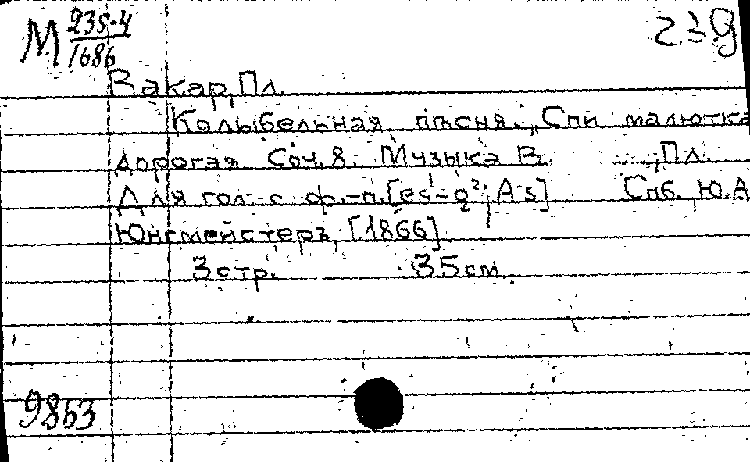 М 235-4
1686
Вакар, Пл.
Колыбельная пѣсня. „Спи малютка
дорогая Соч. 8. Музыка В. ....., Пл.
Для гол. с ф.-п. [es-g²; As] Спб. Ю.А
Юнгмейстеръ, [1866]
3 стр. 35 см.
9853